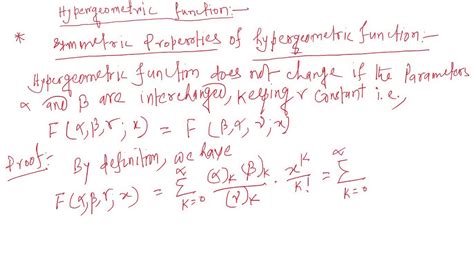 Hypergeometric function:-
* Symmetric Properties of hypergeometric function:-
Hypergeometric function does not change if the Parameters
α and β are interchanged, keeping γ constant i.e.,
F(α,β,γ;x) = F(β,α,γ;x)
Proof:- By definition, we have
F(α,β,γ;x) = ∑_{k=0}^{∞} (α)_k (β)_k / (γ)_k · x^k / k! = ∑_{k=0}^{∞}